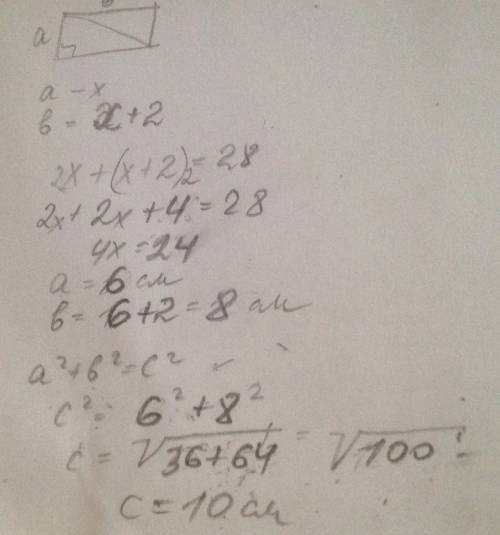 в
a
a - x
в = x+2
2x+(x+2)2=28
2x+2x+4=28
4x=24
a = 6 см
в = 6+2=8 см
a²+в²=c²
c²= 6²+8²
c = √36+64 = √100 =
c=10 см